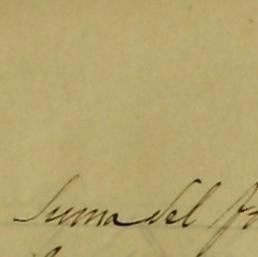 Suma del